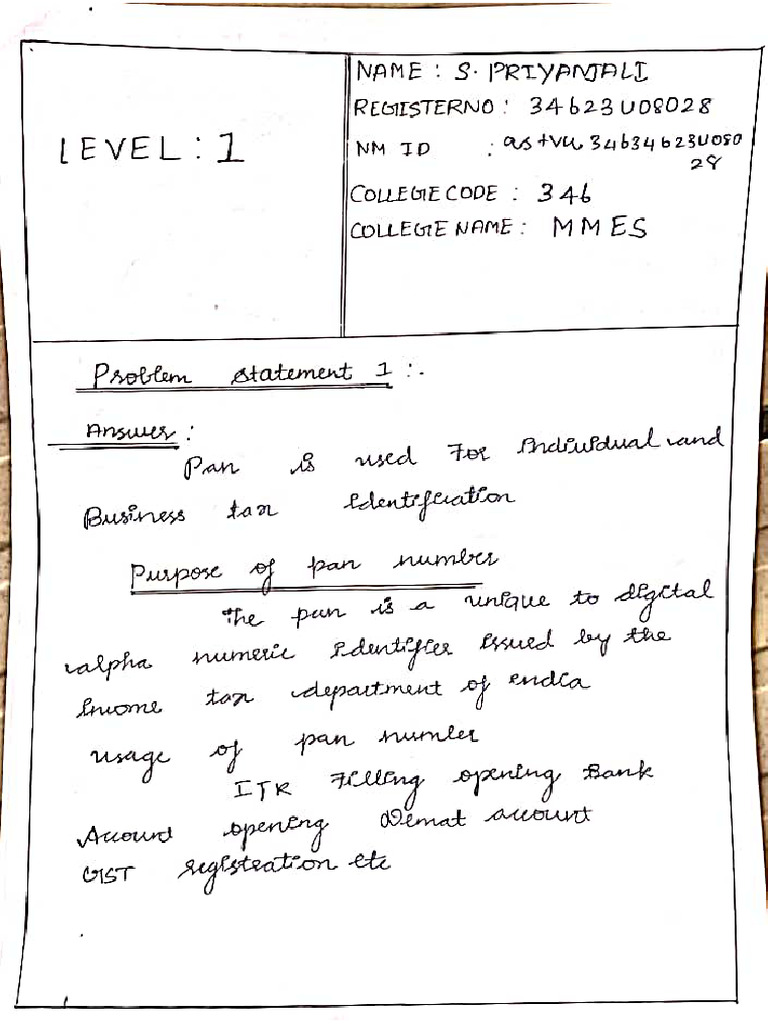 LEVEL : 1
NAME : S. PRIYANJALI
REGISTERNO : 34623U08028
NM ID : as+vu34634623U080
28
COLLEGE CODE : 346
COLLEGE NAME : MMES
Problem statement 1 :.
Answer :
Pan is used For Individual and
Business tax identification
Purpose of pan number
The pan is a unique to digital
alpha numeric identifier issued by the
income tax department of endia
usage of pan number
ITR Filling opening Bank
Account opening Demat account
GST registration etc